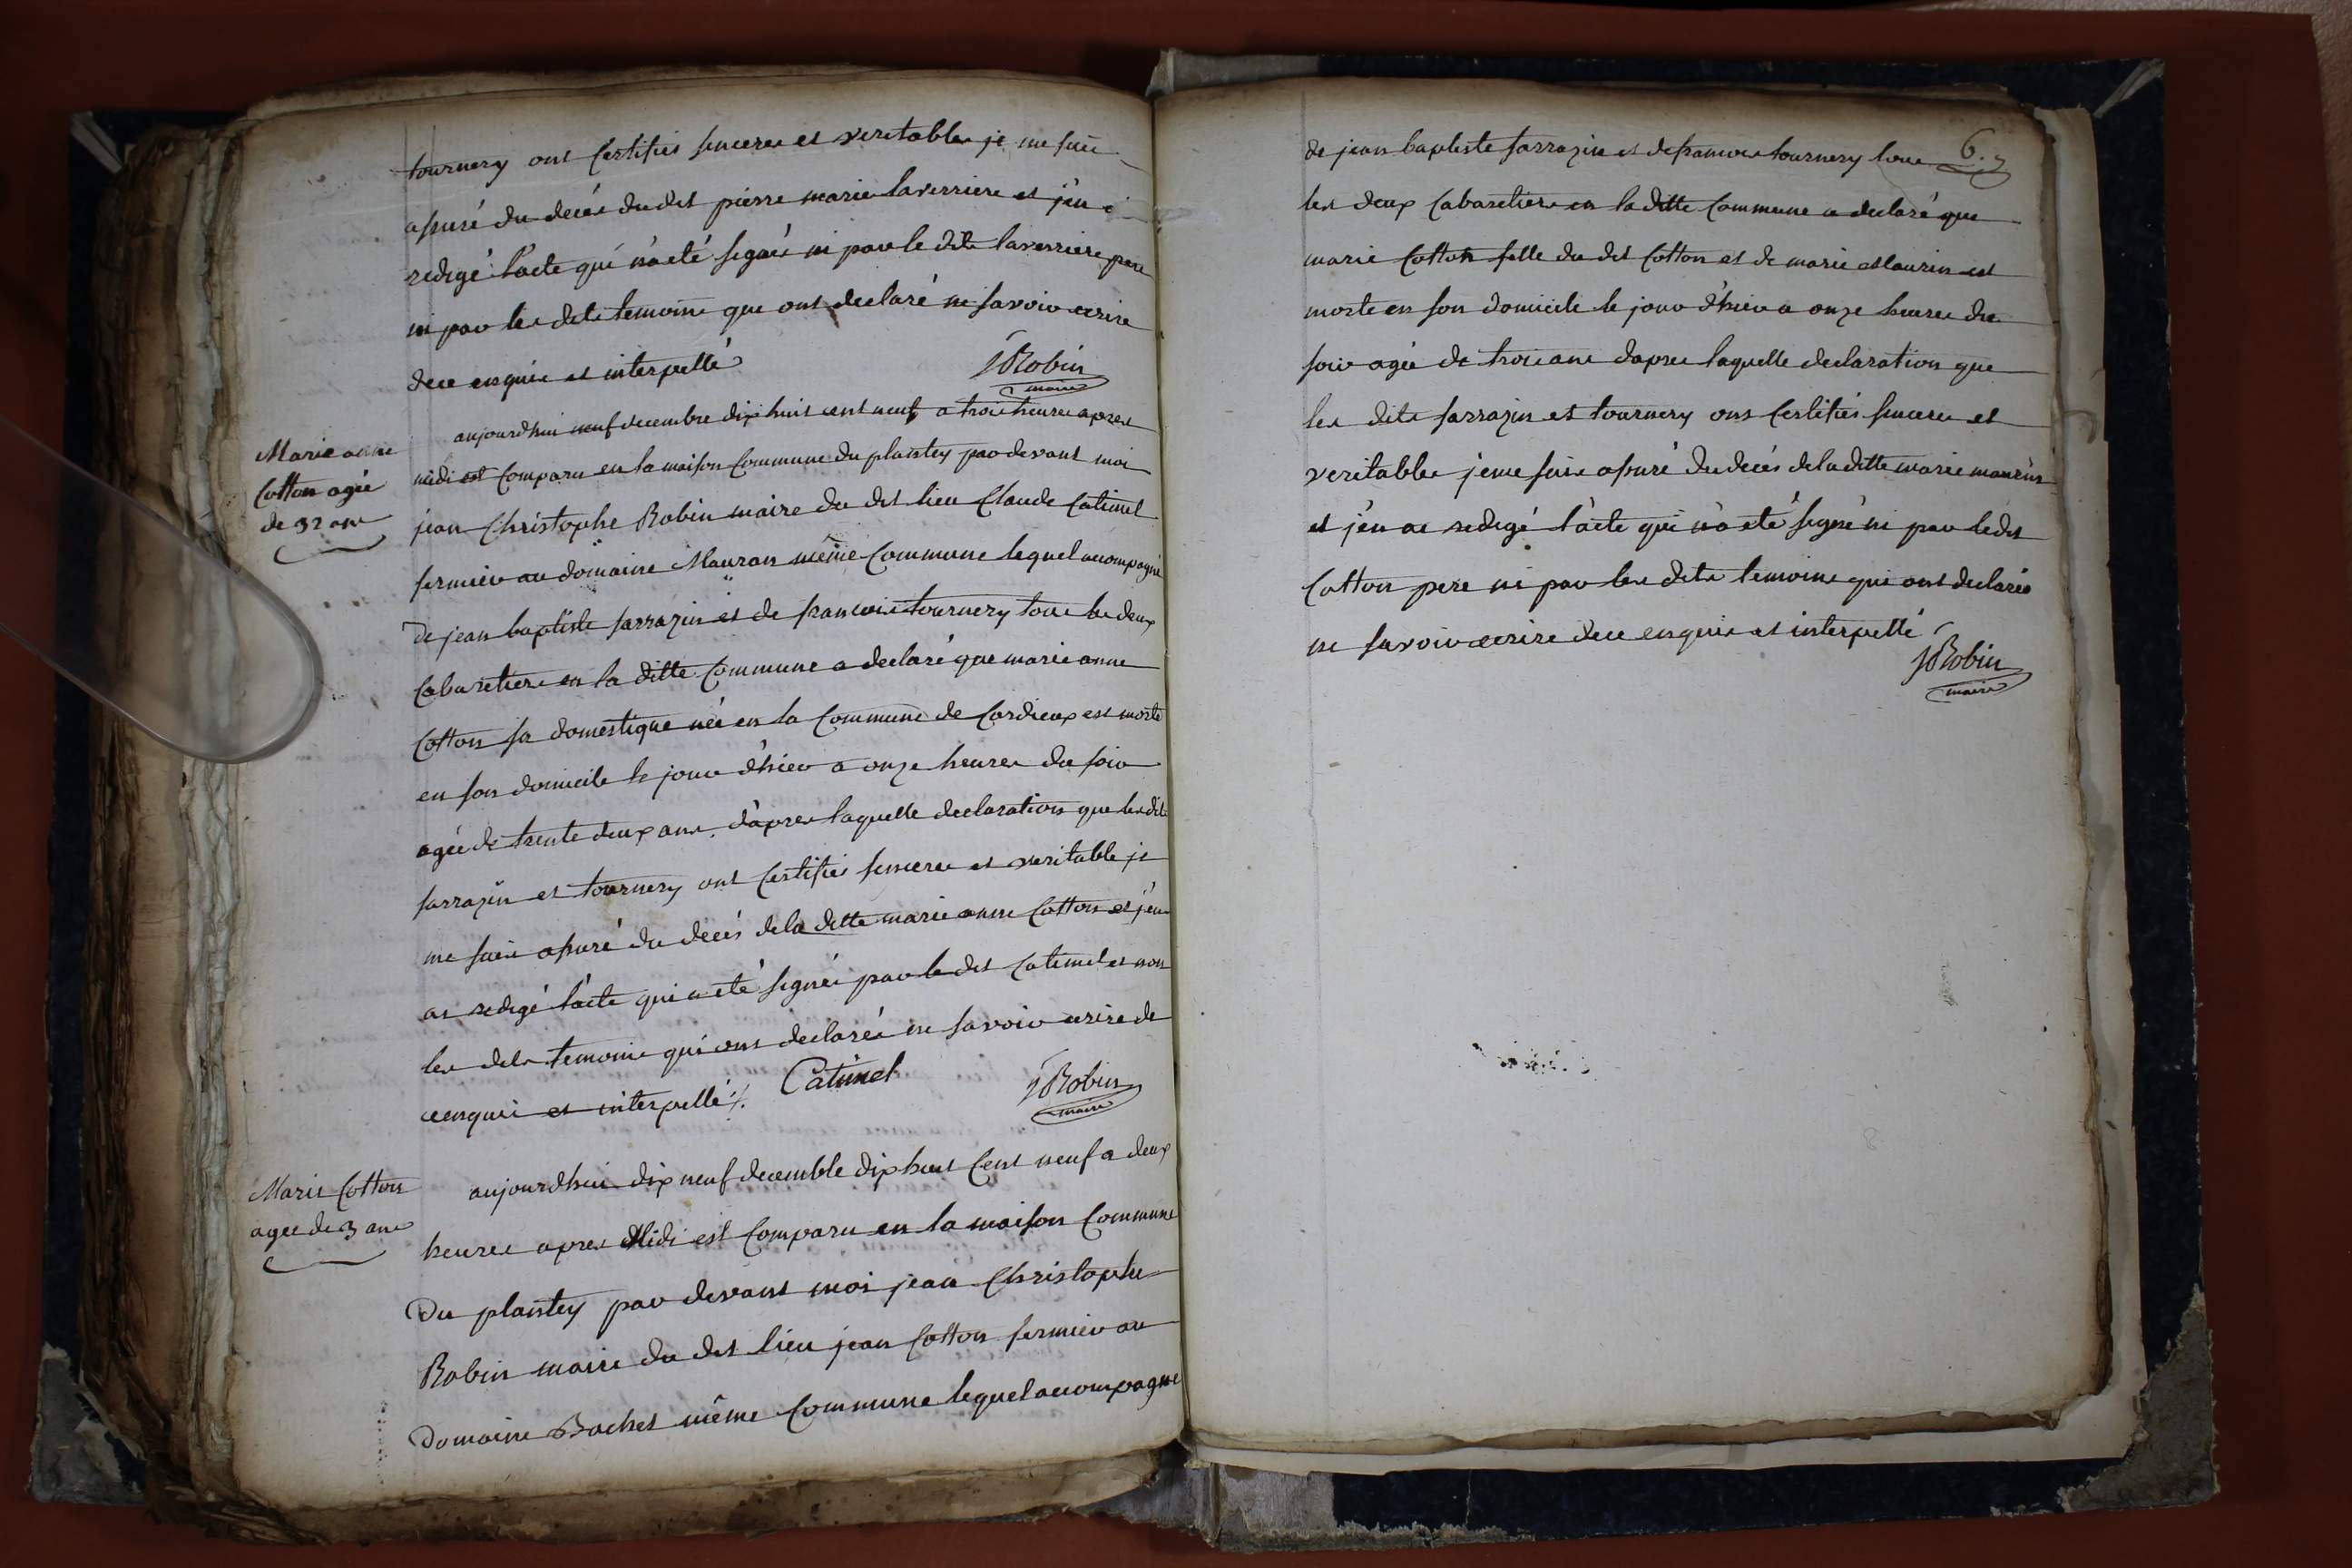 tournery ont Certifiés sincere et veritable je me suis
assuré du decés dudit pierre marie laverriere et j'en ai
redigé l'acte qui n'a eté signé ni par le dit laverriere pere
ni par les dits temoins que ont declaré ne savoir ecrire
dece enquis et interpellé
JRobin
maire
Marie anne
Cotton agée
de 32 ans
aujourdhui neuf decembre dix huit cent neuf a trois heures apres
midi est Comparu en la maison Commune du plantey par devant moi
jean Christophe Robin maire du dit lieu Claude Catimel
fermier au domaine Mauran même Commune lequel accompagné
de jean baptiste sarrazin et de francois tournery tous les deux
Cabaretiers en la ditte Commune a declaré que marie anne
Cotton sa domestique née en la Commune de Cordieux est morte
en son domicile le jour d'hier a onze heures du soir
agée de trente deux ans d'apres laquelle declaration que les dits
sarrazin et tournery ont Certifiés sincere et veritable je
me suis assuré du decés de la ditte marie anne Cotton et j'en
ai redigé l'acte qui a eté signé par le dit Catimel et non
les dits temoins qui ont declarés ne savoir ecrire de
ce enquis et interpellé ./.
Catimel
JRobin
maire
Marie Cotton
agée de 3 ans
aujourdhui dix neuf decemble dix huit Cent neuf a deux
heures apres Midi est Comparu en la maison Commune
Du plantey par devant moi jean Christophe
Robin maire du dit lieu jean Cotton fermier au
Domaine Bachet même Commune lequel accompagné
6.
de jean baptiste sarrazin et de francois tournery tous
les deux Cabaretiers en la ditte Commune a declaré que
marie Cotton fille du dit Cotton et de marie Maurin est
morte en son domicile le jour d'hier a onze heures du
soir agée de trois ans dapres laquelle declaration que
les dits sarrazin et tournery ont Certifiés sincere et
veritable je me suis assuré du decés de la ditte marie maurin
et j'en ai redigé l'acte qui n'a eté signé ni par ledit
Cotton pere ni par les dits temoins qui ont declarés
ne savoir ecrire dece enquis et interpellé
JRobin
maire